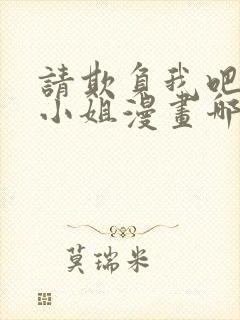 請欺負我吧
小姐漫畫哪
莫瑞米